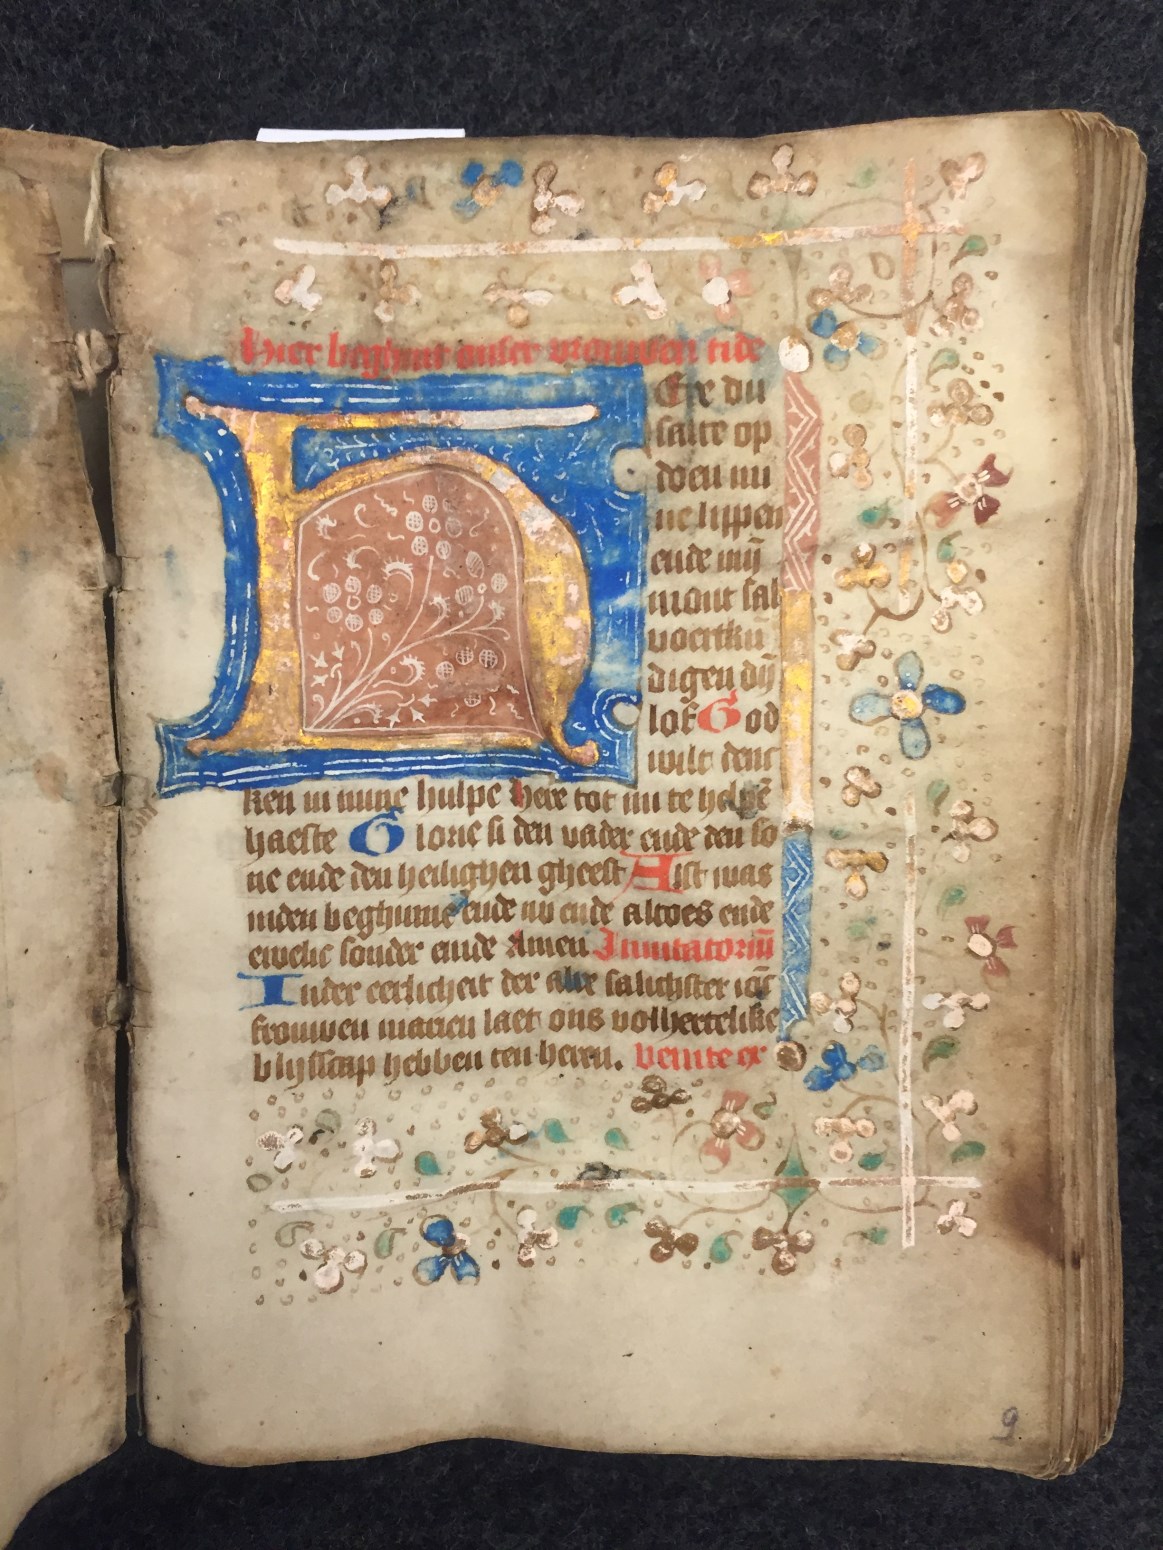 Hier beghint onser vrouwen tide
HEre du
salte op
doen mi
ne lippen
ende mijn̄
mont sal
voertkū
digen dijn̄
lof God
wilt denc
ken in mine hulpe here tot mi te helpē
haeste Glorie si den vader ende den so
ne ende den heilighen gheest Alst was
inden beghinne ende nu ende altoes ende
ewelic sonder einde Amen Inuitatoriū
Inder eerlicheit der alre salichster
frouwen marien laet ons volhertelike
blijsscap hebben ten heren. Venite ex
9